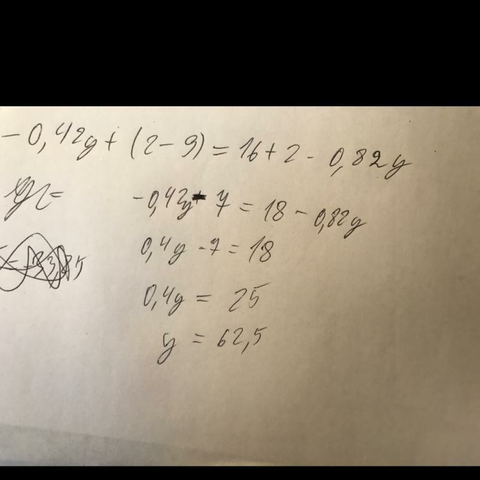 - 0,42y + (2 - 9) = 16 + 2 - 0,82y
-0,42y - 7 = 18 - 0,82y
0,4y - 7 = 18
0,4y = 25
y = 62,5